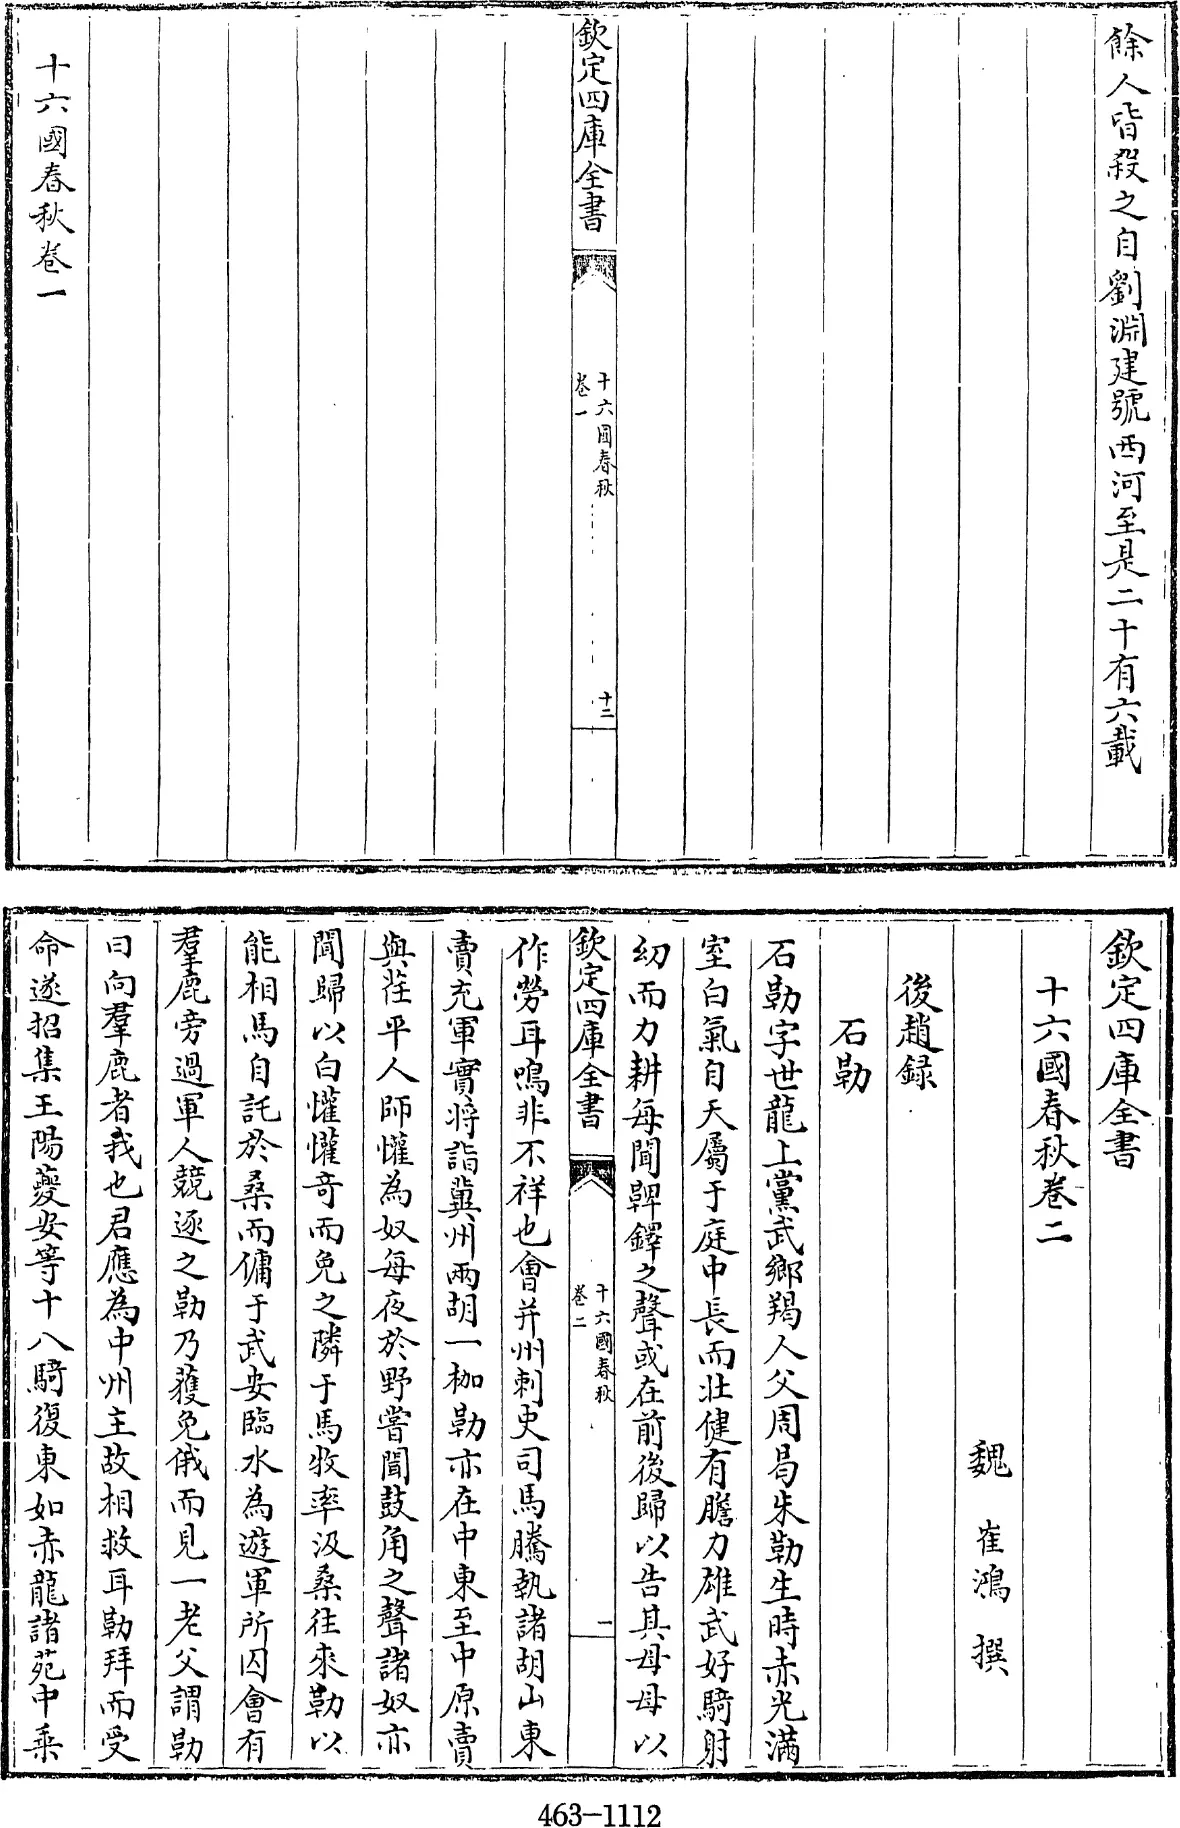 餘人皆殺之自劉淵建號西河至是二十有六載
欽定四庫全書
十六國春秋
卷一
十二
十六國春秋卷一
欽定四庫全書
十六國春秋卷二
魏 崔鴻 撰
後趙録
石勒
石勒字世龍上黨武鄉羯人父周曷朱勒生時赤光滿
室白氣自天屬于庭中長而壯健有膽力雄武好騎射
幼而力耕每聞鞞鐸之聲或在前後歸以告其母母以
欽定四庫全書
十六國春秋
卷二
一
作勞耳鳴非不祥也會并州刺史司馬騰執諸胡山東
賣充軍實將詣冀州兩胡一枷勒亦在中東至中原賣
與茌平人師懽為奴每夜於野嘗聞鼓角之聲諸奴亦
聞歸以白懽懽奇而免之隣于馬牧率汲桑往來勒以
能相馬自託於桑而傭于武安臨水為遊軍所囚會有
羣鹿旁過軍人競逐之勒乃獲免俄而見一老父謂勒
曰向羣鹿者我也君應為中州主故相救耳勒拜而受
命遂招集王陽夔安等十八騎復東如赤龍諸苑中乘
463-1112